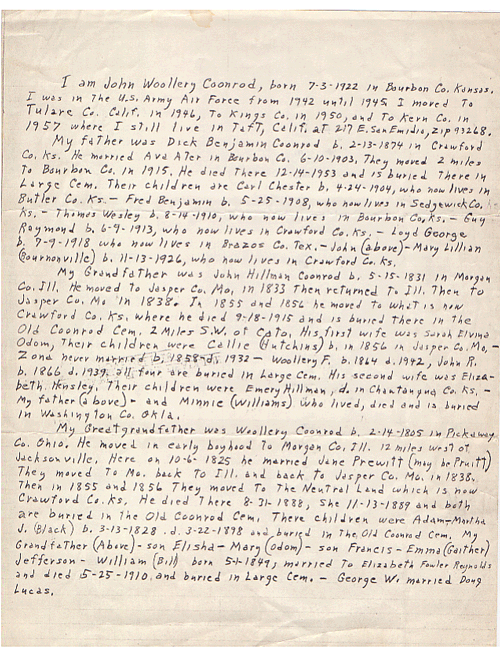 I am John Woollery Coonrod, born 7-3-1922 in Bourbon Co. Kansas.
I was in the U.S. Army Air Force from 1942 until 1945 I moved to
Tulare Co. Calif. in 1946, To Kings Co. in 1950, and To Kern Co. in
1957 where I still live in Taft, Calif. at 217 E. San Emidio, Zip 93268.
My father was Dick Benjamin Coonrod b. 2-13-1874 in Crawford
Co. Ks. He married Ava Ater in Bourbon Co. 6-10-1903, They moved 2 miles
to Bourbon Co. in 1915. He died There 12-14-1953 and is buried There in
Large Cem. Their children are Carl Chester b. 4-24-1904, who now lives in
Butler Co. Ks. - Fred Benjamin b. 5-25-1908, who now lives in Sedgewick Co.
Ks. - Thomas Wesley b. 8-14-1910, who now lives in Bourbon Co, Ks. - Guy
Raymond b. 6-9-1913, who now lives in Crawford Co. Ks. - Loyd George
b. 7-9-1918 who now lives in Brazos Co. Tex. - John (above) - Mary Lillian
(Bournonville) b. 11-13-1926, who now lives in Crawford Co. Ks.
My Grandfather was John Hillman Coonrod b. 5-15-1831 in Morgan
Co. Ill. He moved to Jasper Co. Mo, in 1833 Then returned To Ill. Then to
Jasper Co. Mo in 1838. In 1855 and 1856 he moved to what is now
Crawford Co. Ks, where he died 9-18-1915 and is buried there in the
Old Coonrod Cem. 2 Miles S.W. of Cato, His first wife was Sarah Elvina
Odom, Their children were Callie (Hutchins) b, in 1856 in Jasper Co. Mo, -
Zona never married b. 1858-d. 1932 - Woollery F. b. 1864 d. 1942, John R.
b. 1866 d. 1939, all four are buried in Large Cem. His second wife was Eliza-
beth Hensley. Their children were Emery Hillman, d. in Chautauqua Co. Ks. -
My father (above) - and Minnie (Williams) who lived, died and is buried
in Washington Co. Okla.
My Great grandfather was Woollery Coonrod b. 2-14-1805 in Pickaway
Co. Ohio. He moved in early boyhood to Morgan Co. Ill. 12 miles west of
Jacksonville. Here on 10-6-1825 he married Jane Prewitt (may be Pruitt)
They moved To Mo. back To Ill. and back to Jasper Co. Mo, in 1838.
Then in 1855 and 1856 They moved to The Neutral Land which is now
Crawford Co. Ks, He died There 8-31-1888, She 11-13-1889 and both
are buried in the Old Coonrod Cem. There children were Adam - Martha
J. (Black) b. 3-13-1828 d. 3-22-1898 and buried in the Old Coonrod Cem. My
Grandfather (Above) - son Elisha - Mary (Odom) - son Francis - Emma (Gaither)
Jefferson - William (Bill) born 5-1-1849, married to Elizabeth Fowler Reynolds
and died 5-25-1910 and buried in Large Cem. - George W. married Doug
Lucas.